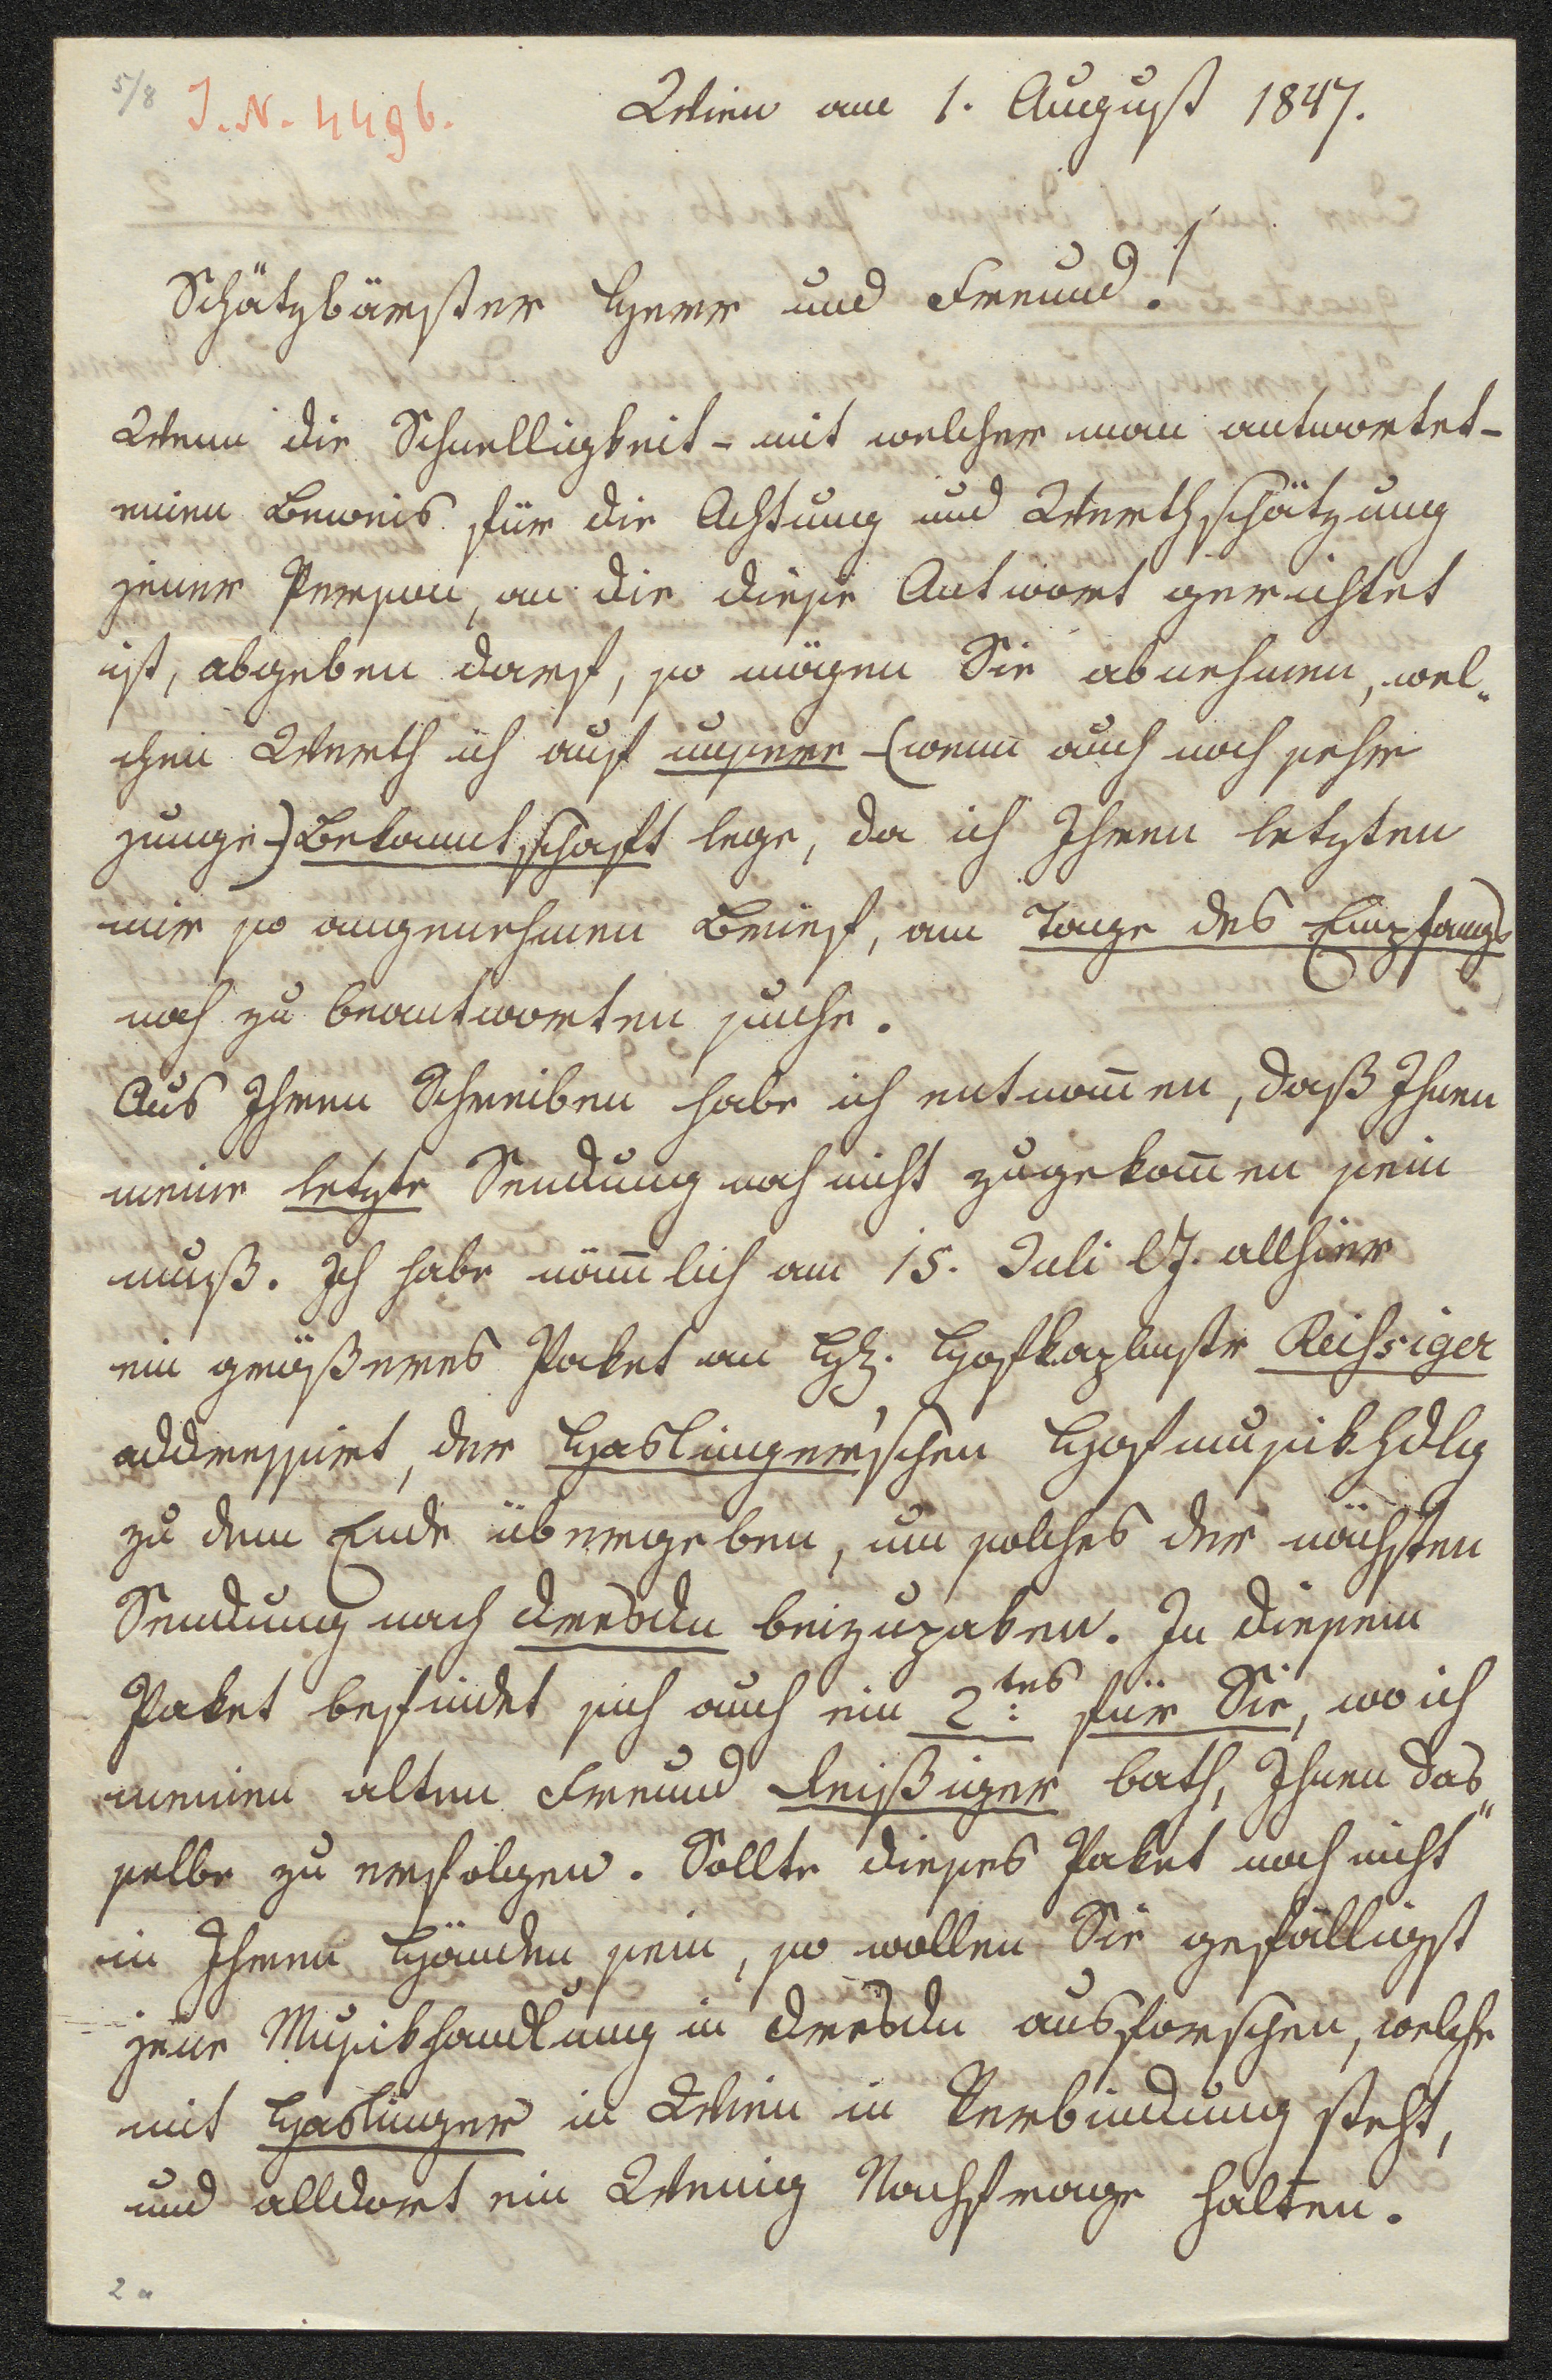 5/8
J.N. 4496.
Wien am 1. August 1847.
Schätzbarster Herr und Freund!
Wenn die Schnelligkeit - mit welcher man antwortet -
einen Beweis für die Achtung und Werthschätzung
jener Person, an die diese Antwort gerichtet
ist, abgeben darf, so mögen Sie abnehmen, wel-
chen Werth ich auf unsere (wenn auch noch sehr
junge) Bekanntschaft lege, da ich Ihren letzten
mir so angenehmen Brief, am Tage des Empfangs
noch zu beantworten suche.
Aus Ihren Schreiben habe ich entnom̄en, daß Ihnen
meine letzte Sendung noch nicht zugekom̄en sein
muß. Ich habe näm̄lich am 15. Juli l. J. allhier
ein größeres Paket an H. Hofkaplmstr Reissiger
addressirt, der Haslinger'schen Hofmusikhdlg
zu dem Ende übergeben, um solches der nächsten
Sendung nach Dresdn beizupaken. In diesem
Paket befindet sich auch ein 2tes für Sie, wo ich
meinen alten Freund Reißiger bath, Ihnen das-
selbe zu erfolgen. Sollte dieses Paket noch nicht
in Ihren Händen sein, so wollen Sie gefälligst
jene Musikhandlung in Dresdn ausforschen, welche
mit Haslinger in Wien in Verbindung steht,
und alldort ein Wenig Nachfrage halten.
2a